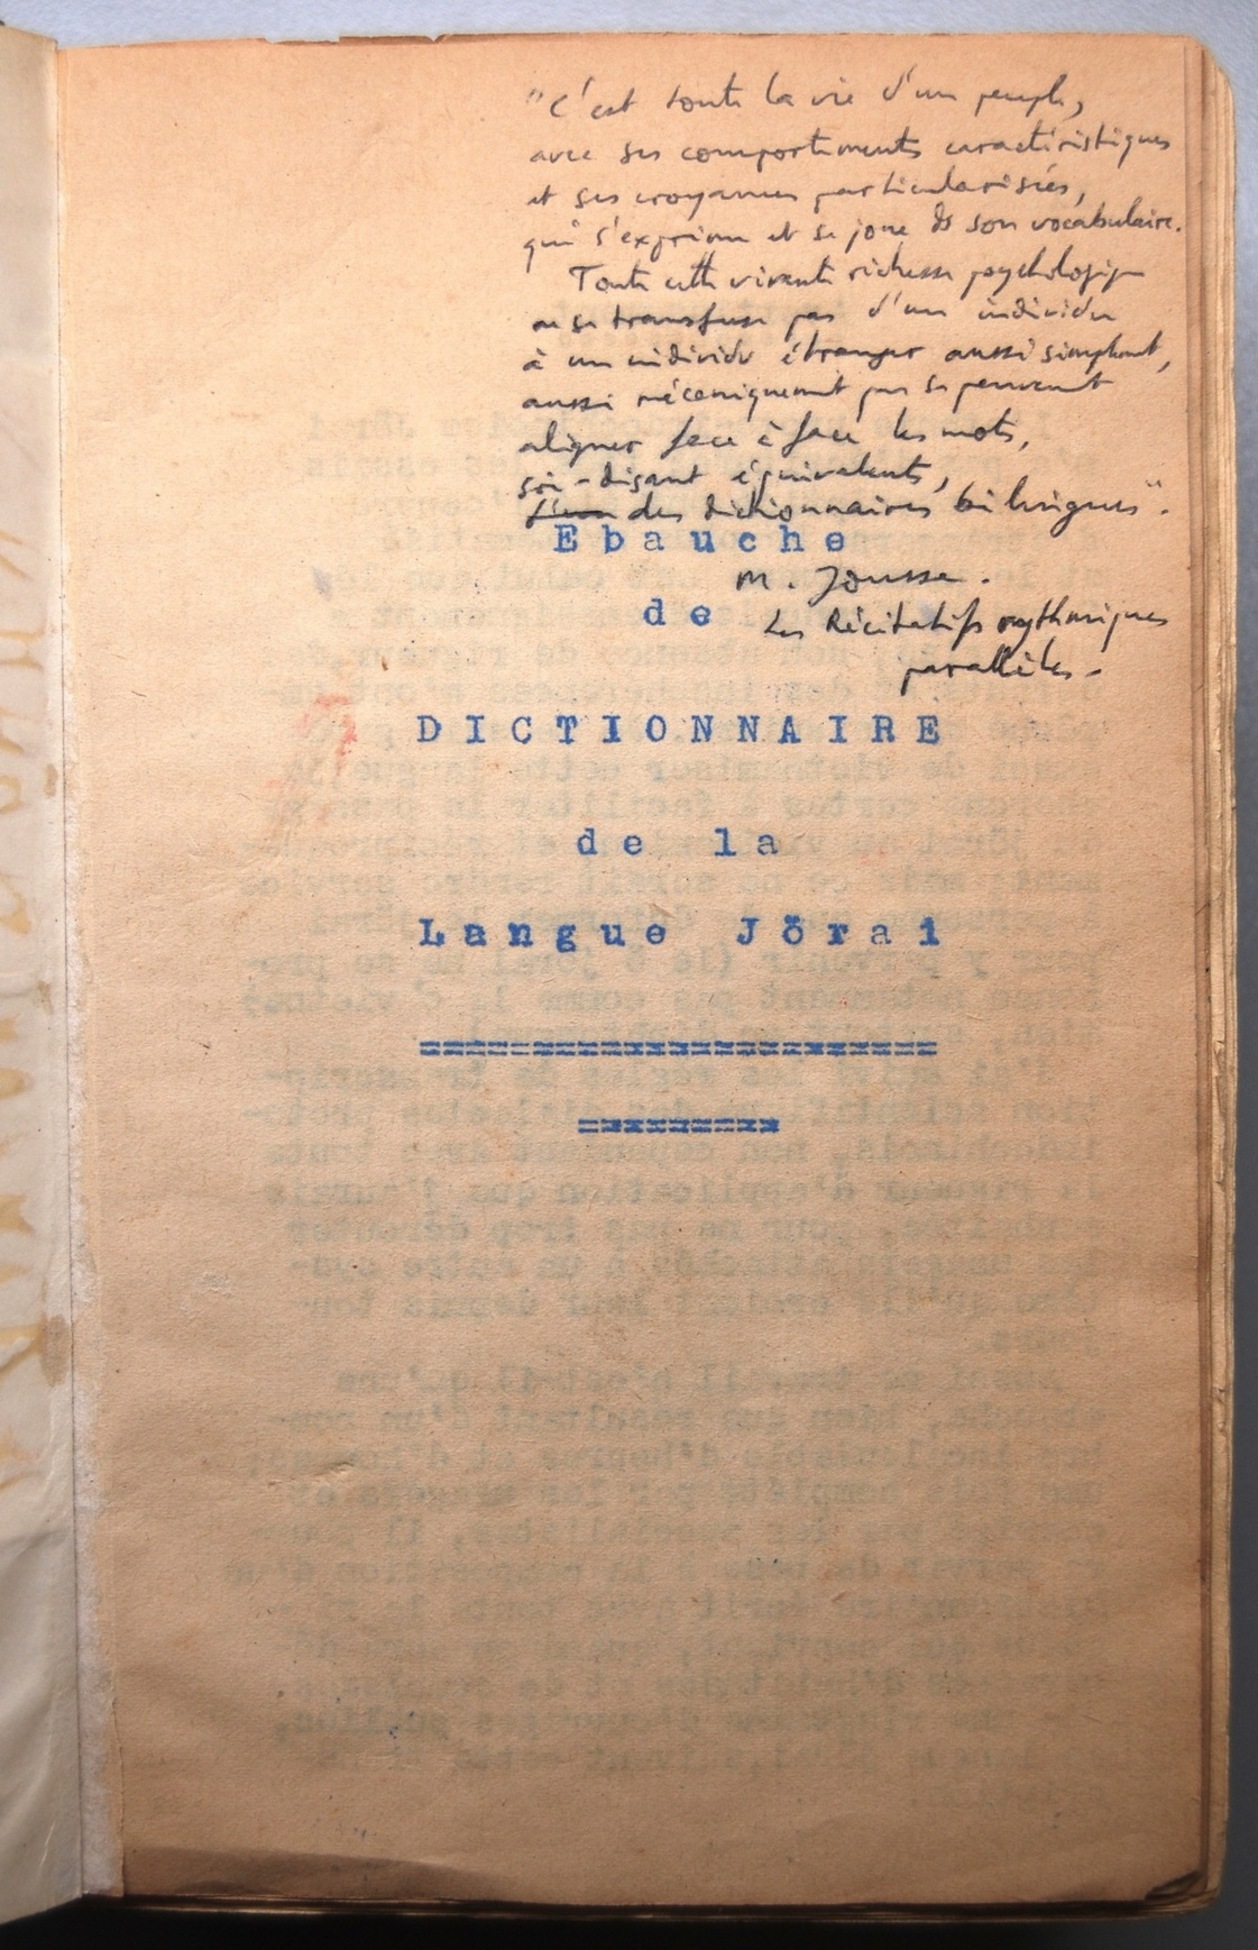 "C'est toute la vie d'un peuple,
avec ses comportements caractéristiques
et ses croyances particularisées,
qui s'exprime et se joue ds son vocabulaire.
Toute cette vivante richesse psychologique
ne se transfuse pas d'un individu
à un individu étranger aussi simplement,
aussi mécaniquement que se peuvent
aligner face à face les mots,
soi-disant équivalents,
des dictionnaires bilingues".
Ebauche
M. Jousse.
de
Les Récitatifs rythmiques
parallèles.
DICTIONNAIRE
de la
Langue Jörai
=======================
=========